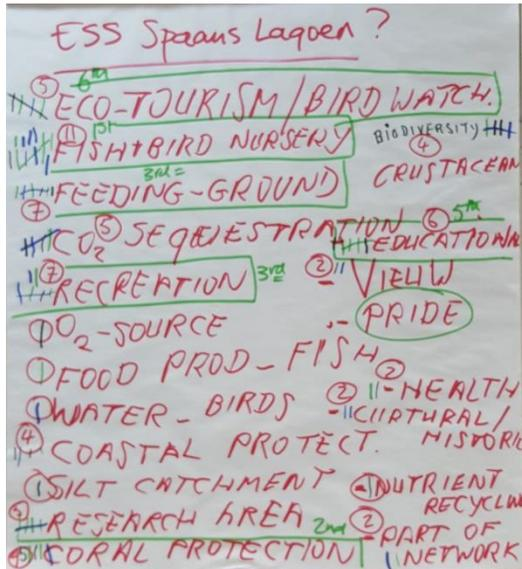 ESS Spaans Lagoen ?
5 6th
ECO-TOURISM/BIRD WATCH.
11 1st
FISH + BIRD NURSERY
BIODIVERSITY
4
3rd =
CRUSTACEAN
7 FEEDING-GROUND
CO2 5 SEQUESTRATION
6 5th
EDUCATION
7 RECREATION 3rd
2 VIEUW
PRIDE
1 O2-SOURCE
1 FOOD PROD- FISH
2
1 WATER- BIRDS
2 -HEALTH
4 COASTAL PROTECT.
HISTORIC
1 SILT CATCHMENT
NUTRIENT
RECYCLIN
RESEARCH AREA 2nd
2 -PART OF
CORAL PROTECTION
NETWORK